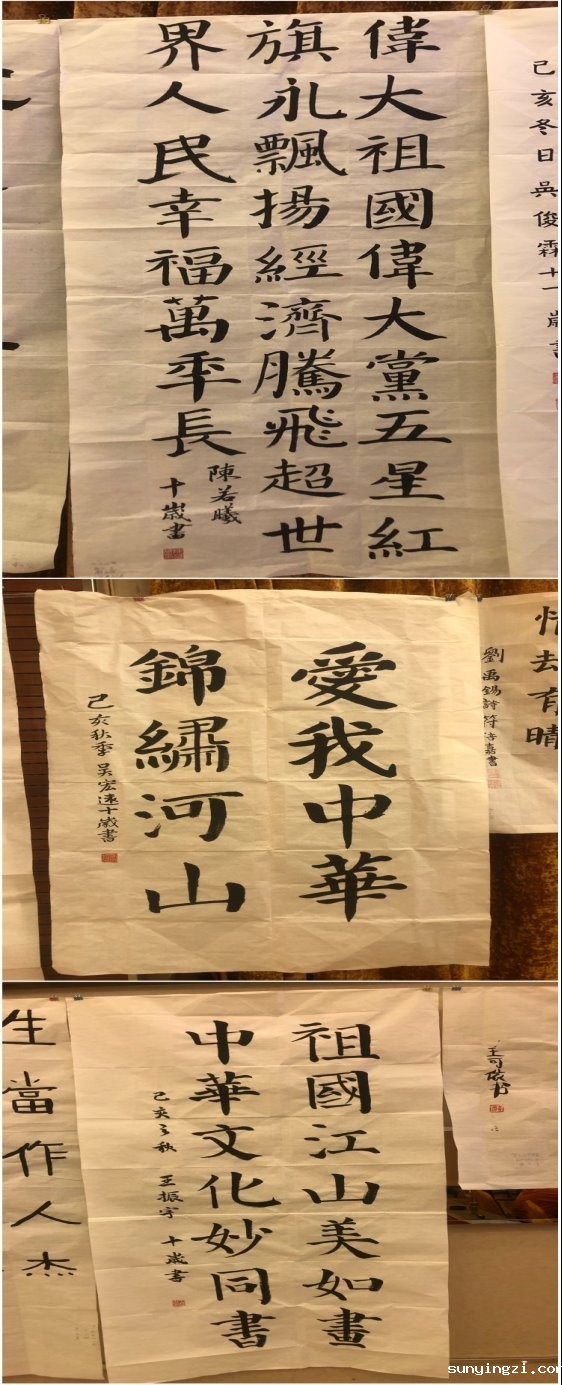 偉大祖國偉大黨五星紅
旗永飄揚經濟騰飛超世
界人民幸福萬年長
陳若曦
十歲書
己亥冬日吳俊霖十一歲書
愛我中華
錦繡河山
己亥秋季吳宏遠十歲書
情去有晴
劉禹錫詩符诗嘉書
祖國江山美如畫
中華文化妙同書
己亥之秋 王振宇 十歲書
生當作人杰
sunyingzi.com